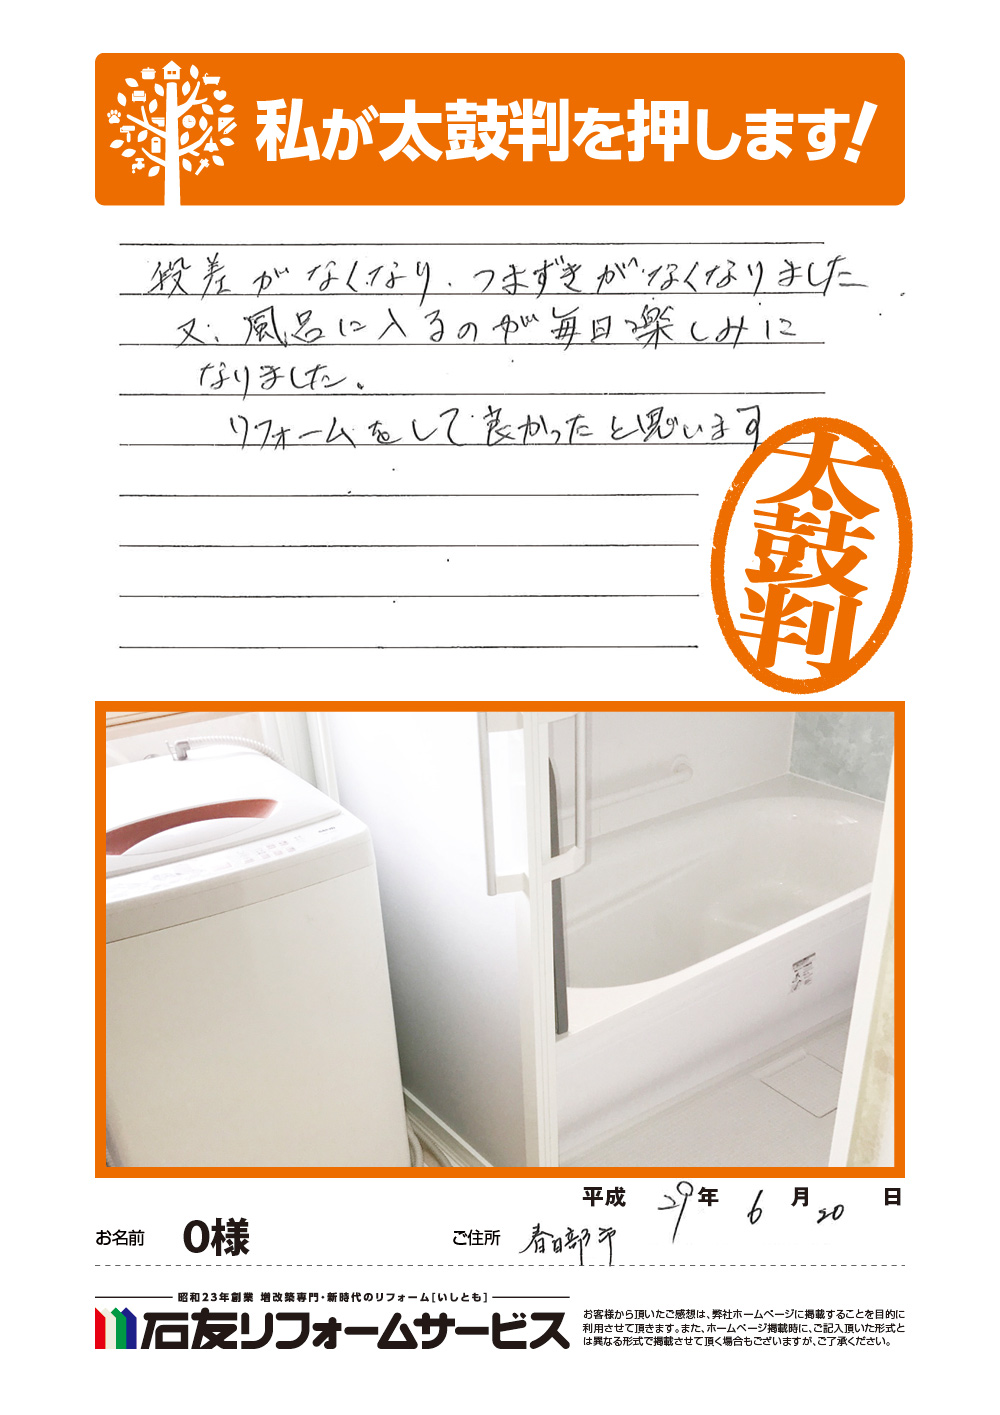 私が太鼓判を押します!
段差がなくなり、つまずきがなくなりました
又、風呂に入るのが毎日楽しみに
なりました。
リフォームをして良かったと思います
太鼓判
平成 29年 6月 20日
お名前 O様 ご住所 春日部市
昭和23年創業 増改築専門・新時代のリフォーム[いしとも]
石友リフォームサービス
お客様から頂いたご感想は、弊社ホームページに掲載することを目的に
利用させて頂きます。また、ホームページ掲載時に、ご記入頂いた形式と
は異なる形式で掲載させて頂く場合もございますが、ご了承ください。